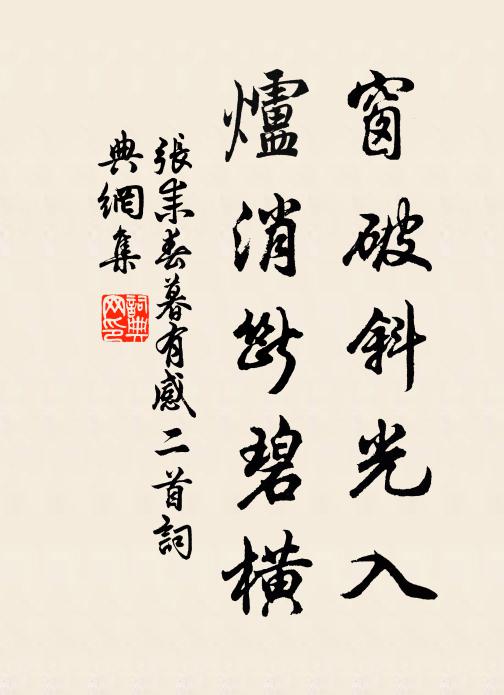 窗破斜光入
爐消斷碧橫
張耒春暮有感二首詞
典網集
詞典
网印